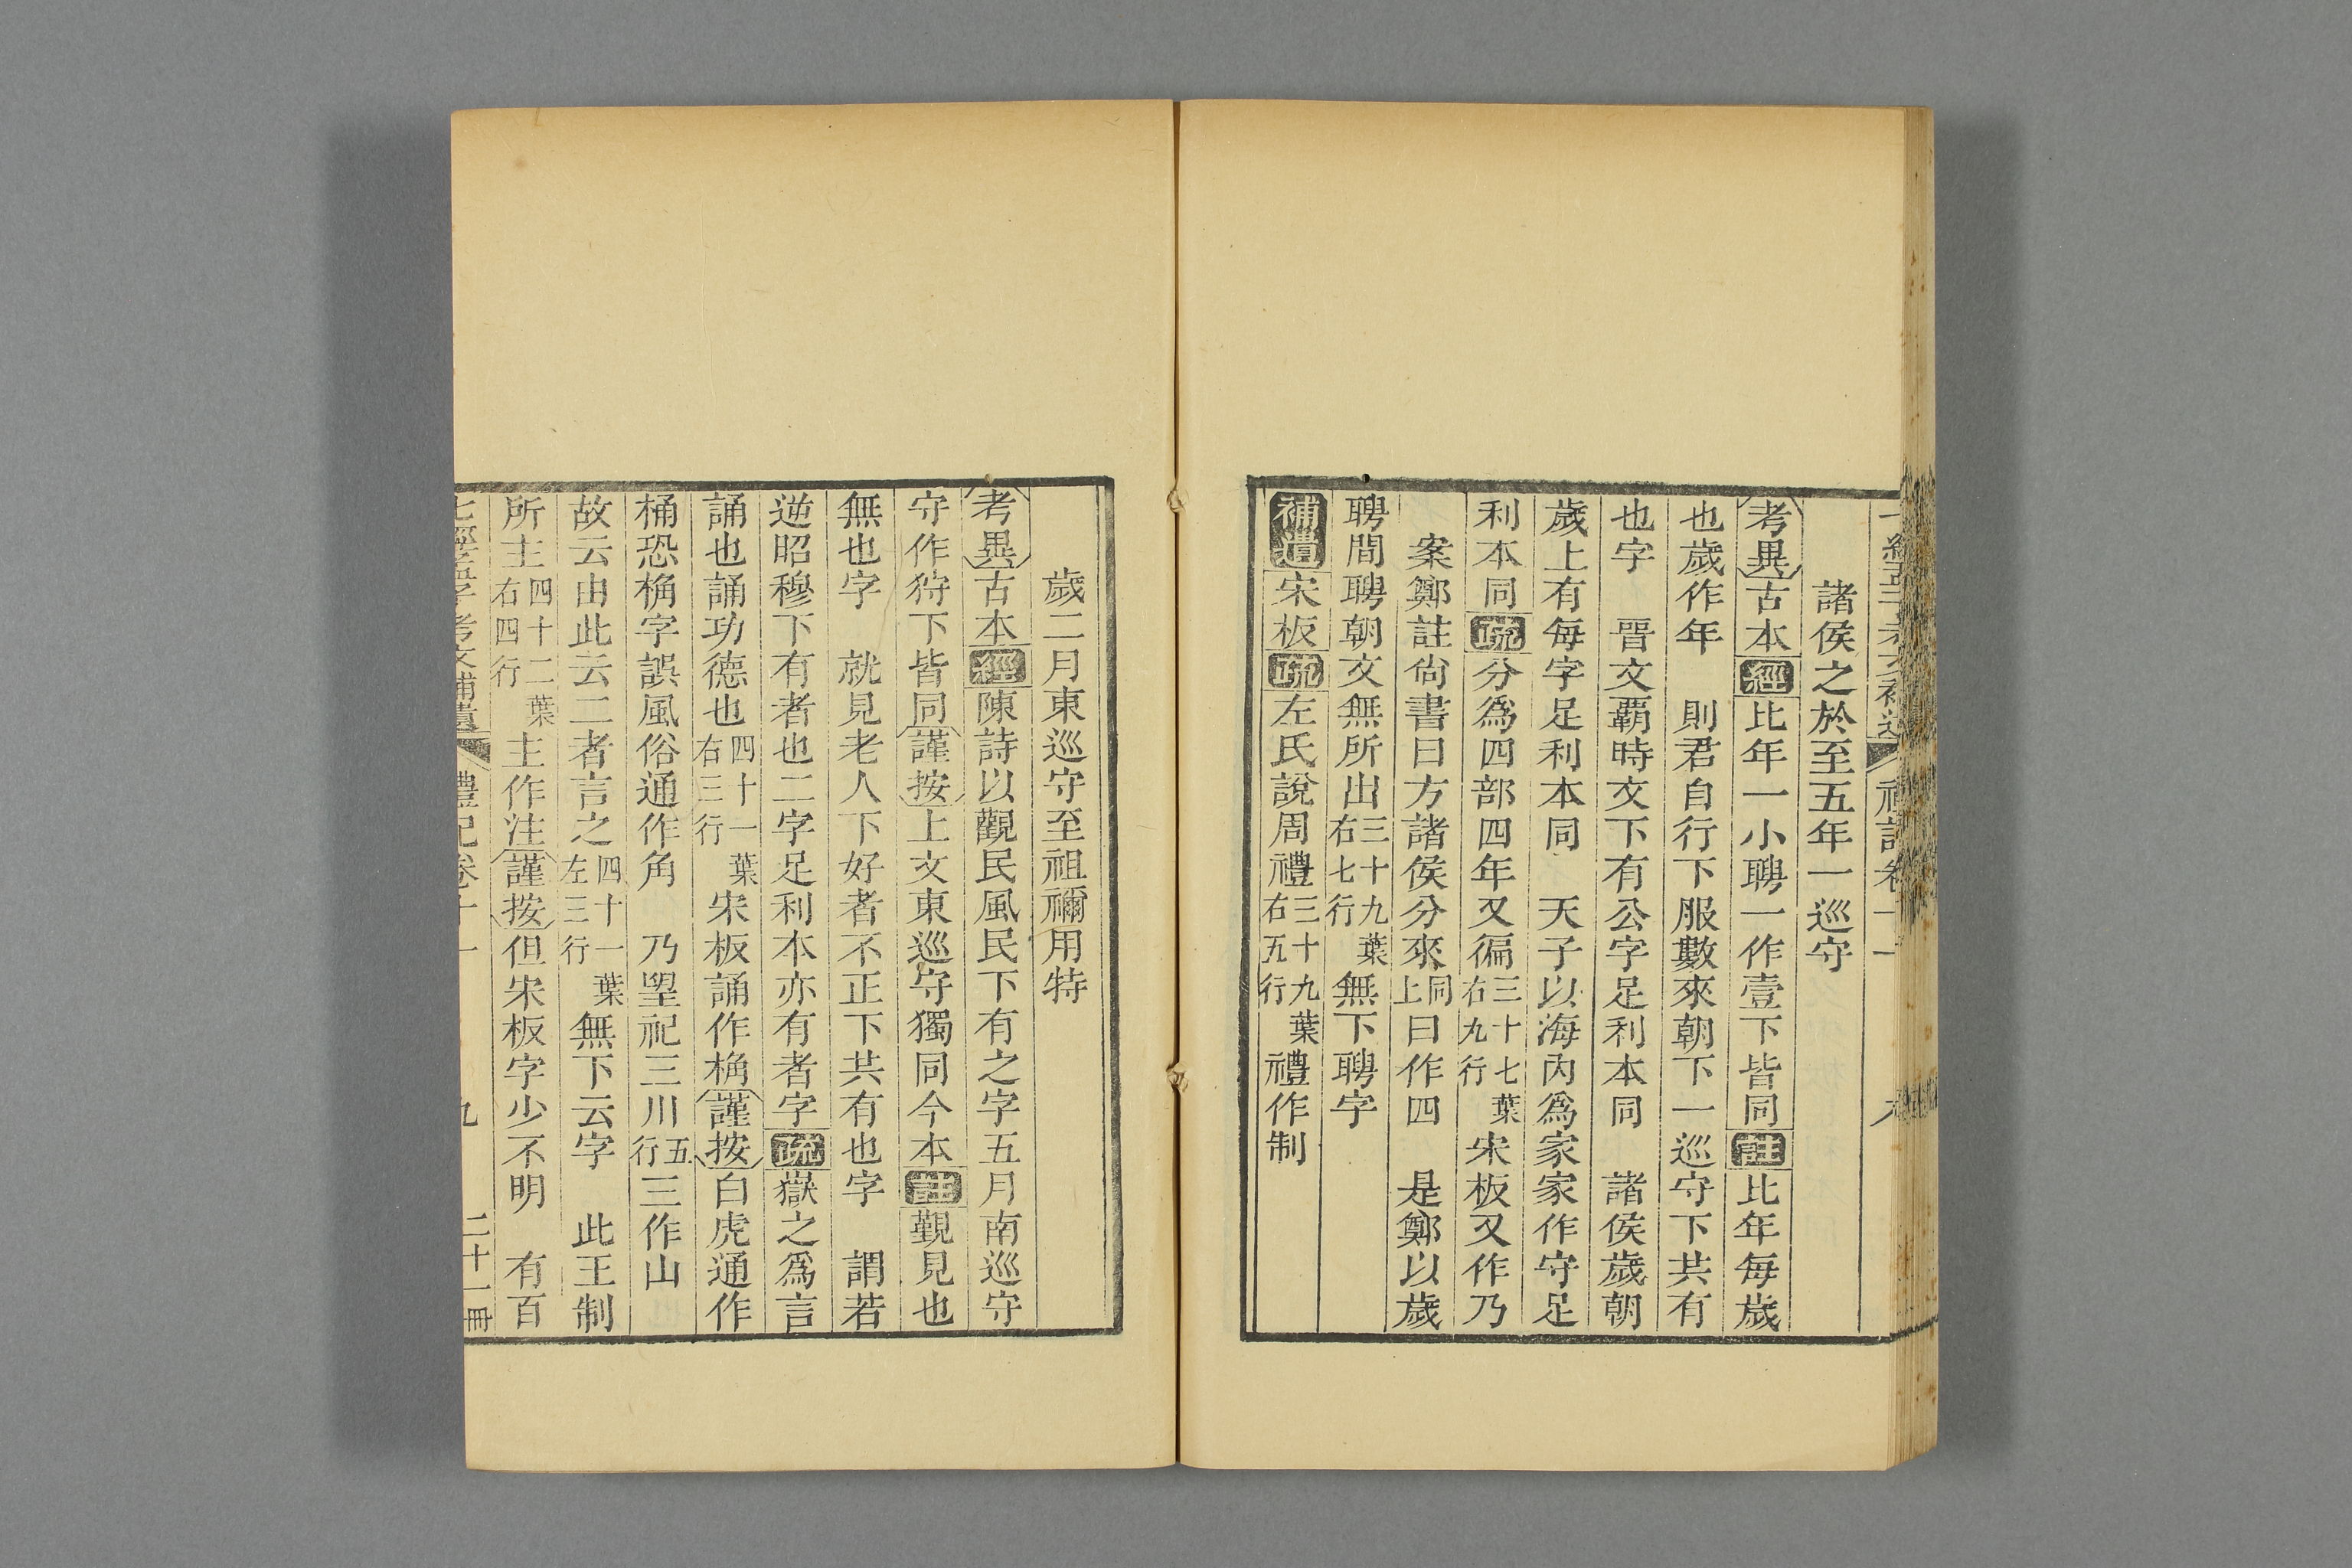 諸侯之於至五年一巡守
考異古本經比年一小聘一作壹下皆同註比年每歲
也歲作年　則君自行下服數來朝下一巡守下共有
也字　晉文霸時文下有公字足利本同　諸侯歲朝
歲上有每字足利本同　天子以海內爲家家作守足
利本同疏分爲四部四年又徧三十七葉右九行宋板又作乃
案鄭註尙書曰方諸侯分來同上曰作四　是鄭以歲
聘間聘朝文無所出三十九葉右七行無下聘字
補遺宋板疏左氏說周禮三十九葉右五行禮作制
歲二月東巡守至祖禰用特
考異古本經陳詩以觀民風民下有之字五月南巡守
守作狩下皆同謹按上文東巡守獨同今本註覲見也
無也字　就見老人下好者不正下共有也字　謂若
逆昭穆下有者也二字足利本亦有者字疏嶽之爲言
誦也誦功德也四十一葉右三行宋板誦作桷謹按白虎通作
桶恐桷字誤風俗通作角　乃朢祀三川五行三作山
故云由此云二者言之四十一葉左三行無下云字　此王制
所主四十二葉右四行主作注謹按但宋板字少不明　有百
七經孟子考文補遺　禮記卷十一　九　二十一冊